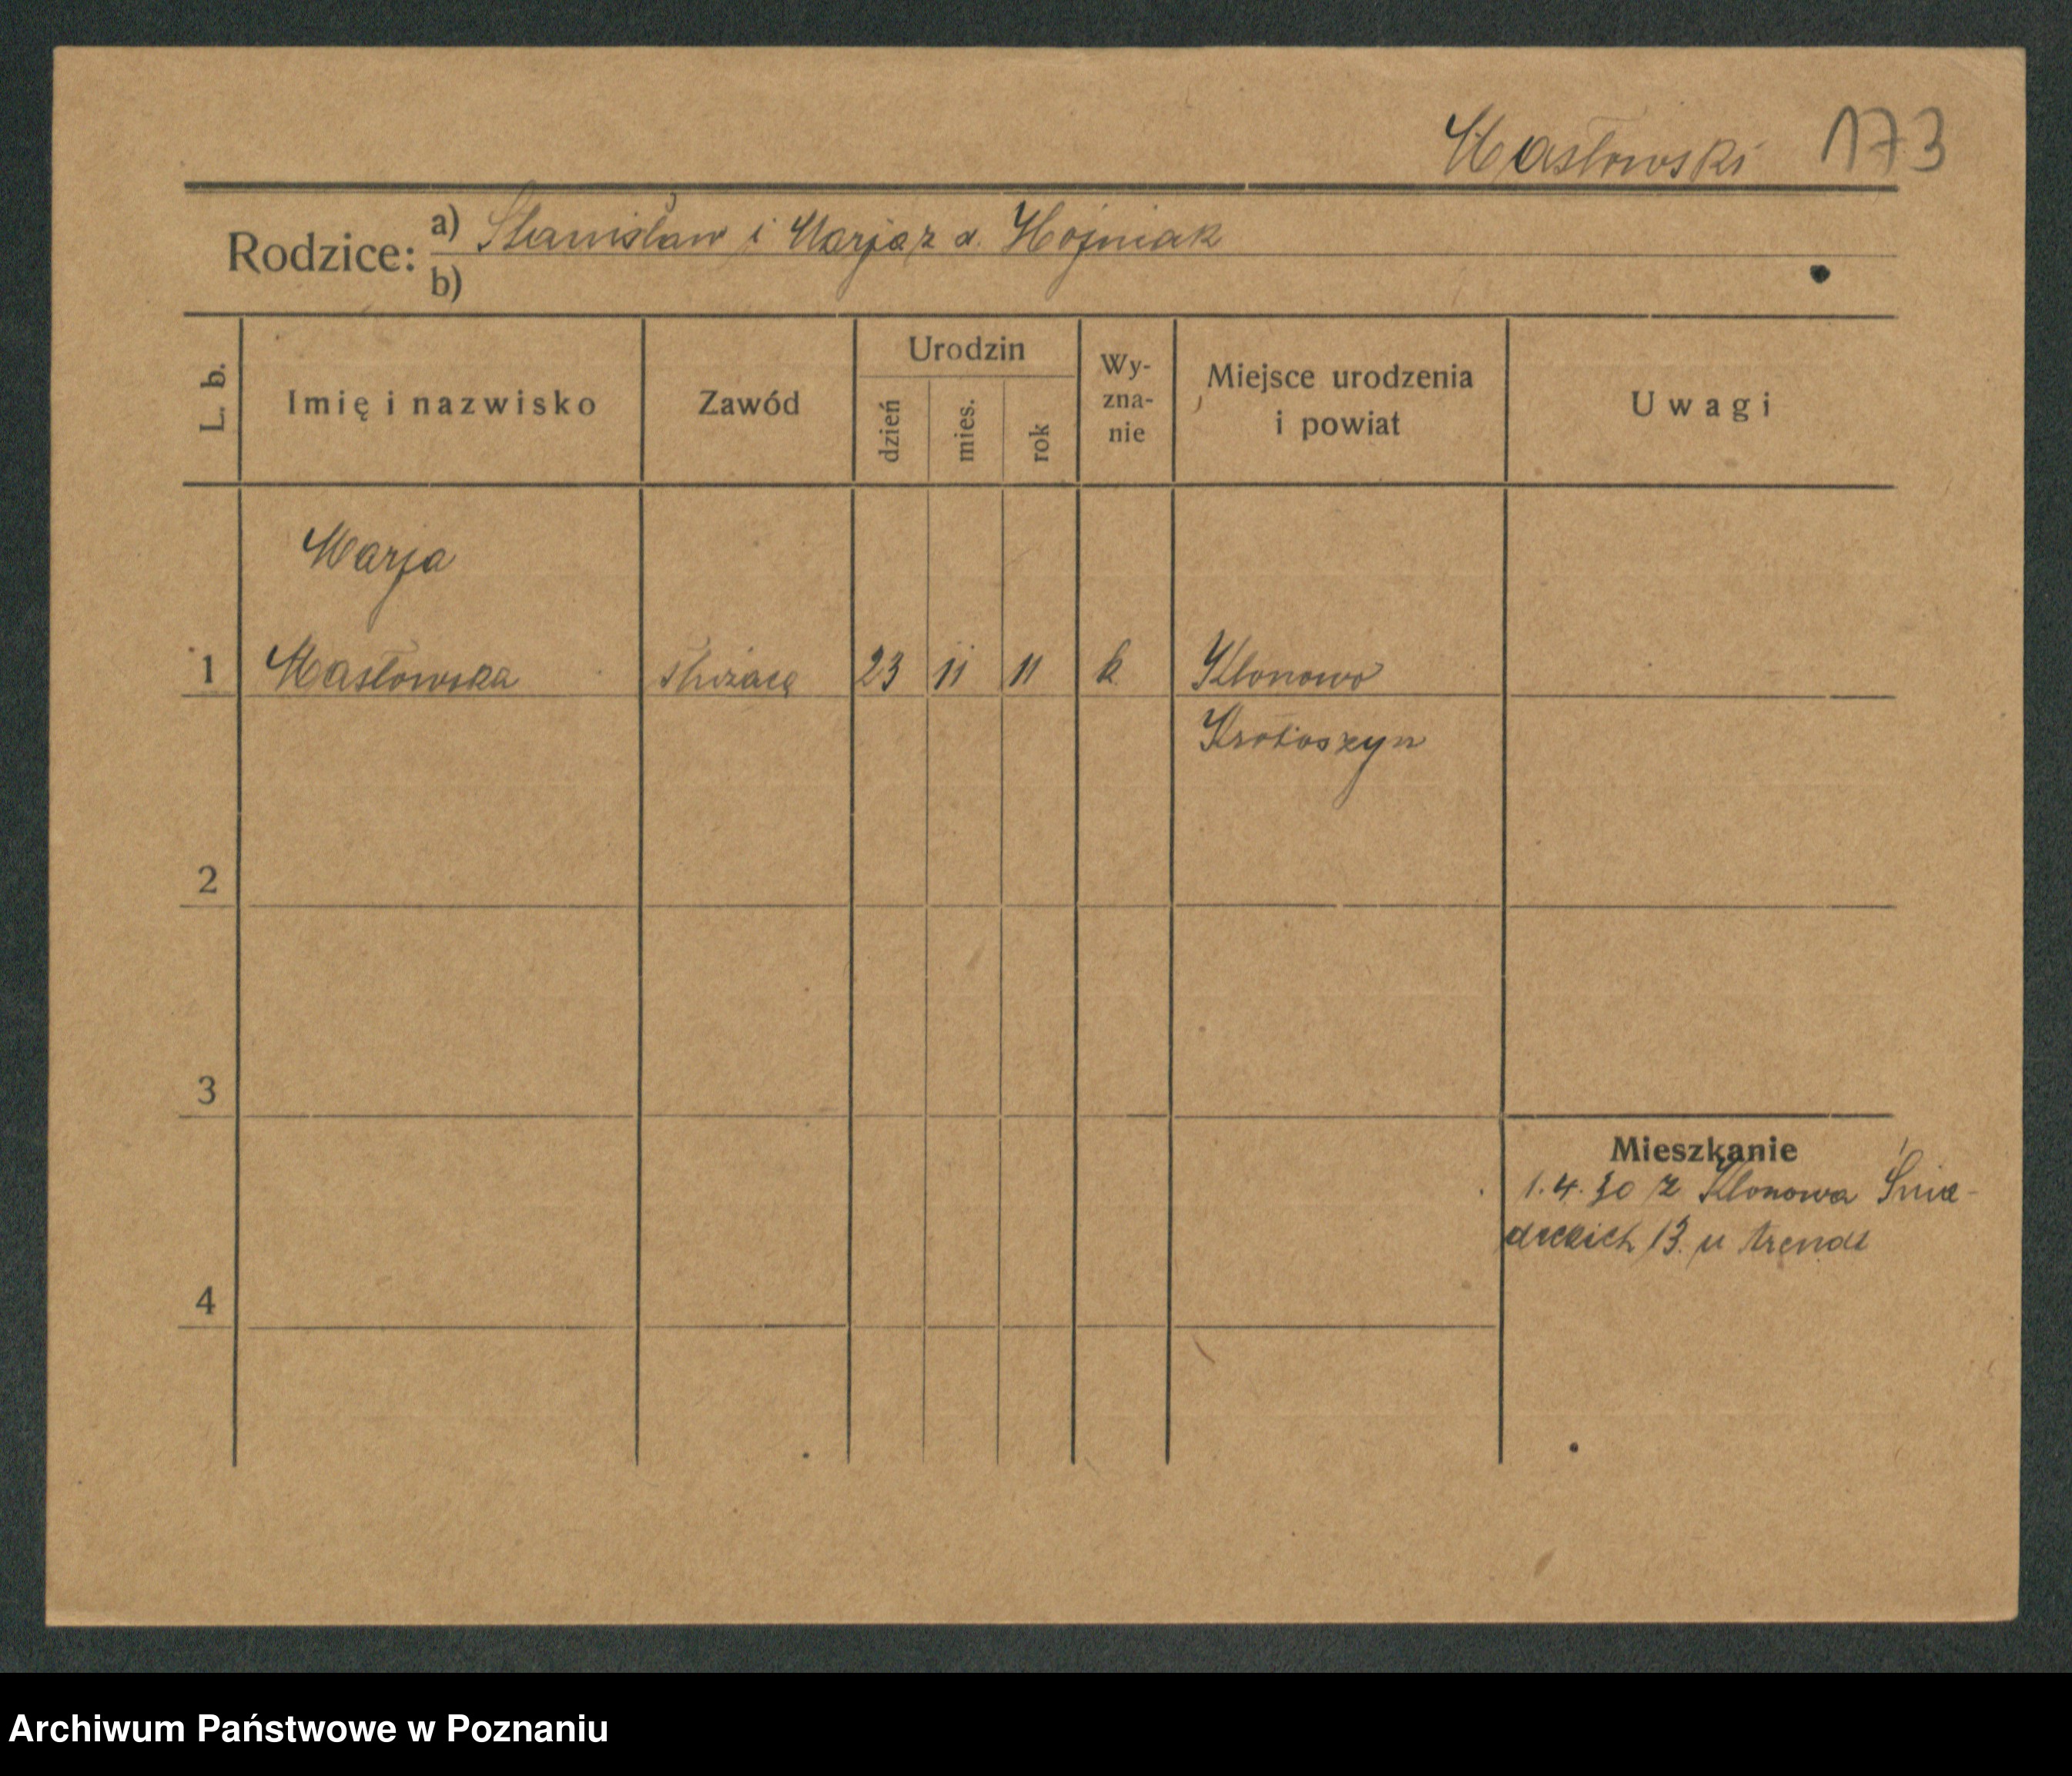 Masłowski 173
Rodzice: a) Stanisław i Marja z d. Hojniak
b)
L. b. Imię i nazwisko Zawód Urodzin dzień mies. rok Wy-zna-nie Miejsce urodzenia i powiat Uwagi
Marja
1 Masłowska służącą 23 11 11 k. Klonowo
Krotoszyn
2
3
Mieszkanie
1.4.30 z Klonowa Śnia-
deckich 13. u
4
Archiwum Państwowe w Poznaniu